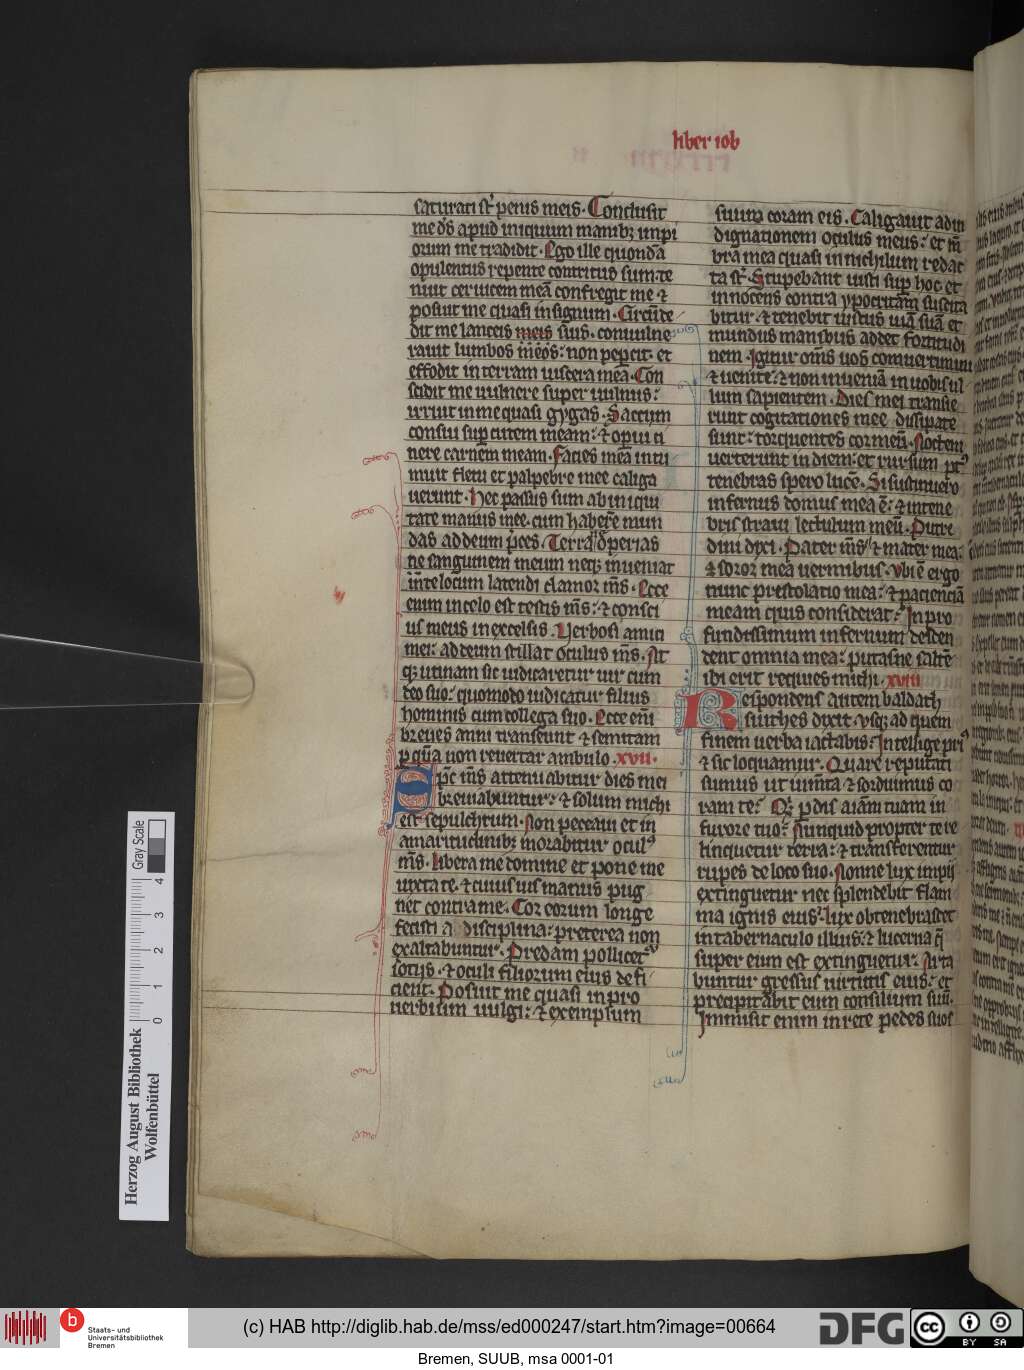 liber iob
saturati st̄ penis meis. Conclusit
me ds̄ apud iniquum manibꝫ impi
orum me tradidit. Ego ille quondā
opulentus repente contritus sum te
nuit ceruicem meā confregit me ⁊
posuit me quasi in signum. Circūde
dit me lanceis meis suis. conuulne
rauit lumbos meos: non pepercit. et
effodit in terram uiscera mea. Con
scidit me uulnere super uulnus:
irruit in me quasi gygas. Saccum
consui sup cutem meam: ⁊ operui ci
nere carnem meam. Facies mea intu
muit fletu et palpebre mee caliga
uerunt. Hec passus sum ab iniqui
tate manus mee. cum haberē mun
das ad deum p̄ces. Terra ne operias
ne sanguinem meum neqꝫ inueniat
in te locum latendi clamor m̄s. Ecce
enim in celo est testis m̄s: ⁊ consci
us meus in excelsis. Uerbosi amici
mei: ad deum stillat oculus m̄s. At
qꝫ utinam sic iudicaretur uir cum
deo suo: quomodo iudicatur filius
hominis cum collega suo. Ecce eni
breues anni transeunt ⁊ semitam
p quā non reuertar ambulo. xvii.
Sp̄c m̄s attenuabitur dies mei
breuiabuntur: ⁊ solum michi
est sepulchrum. Non peccaui et in
amaritudinibꝫ morabitur oculꝰ
m̄s. libera me domine et pone me
iuxta te. ⁊ cuiusuis manus pug
net contra me. Cor eorum longe
fecisti a disciplina: preterea non
exaltabuntur. Predam pollicet
sociis. ⁊ oculi filiorum eius defi
cient. Posuit me quasi in pro
uerbium uulgi: ⁊ exemplum
suum coram eis. Caligauit ad in
dignationem oculus meus: et m̄
bra mea quasi in nichilum redac
ta st̄. Stupebunt iusti sup hoc et
innocens contra ypocritam suscita
bitur. ⁊ tenebit iustus uiā suā et
mundus manibus addet fortitudi
nem. Igitur om̄s uos conuertimini
⁊ uenite: ⁊ non inueniā in uobis ul
lum sapientem. Dies mei transie
runt cogitationes mee dissipate
sunt: torquentes cor meū. Noctem
uerterunt in diem: et rursum pꝰ
tenebras spero lucē. Si sustinuero
infernus domus mea ē: ⁊ in tene
bris straui lectulum meū. Putre
dini dixi. Pater m̄s ⁊ mater mea:
⁊ soror mea uermibus. Ubi ē ergo
nunc prestolatio mea: ⁊ pacienciā
meam quis considerat: In pro
fundissimum infernum descen
dent omnia mea: putasne saltē
ibi erit requies michi. xviii
Respondens autem baldach
suithes dixit. usqꝫ ad quem
finem uerba iactabis: Intellige priꝰ
⁊ sic loquamur. Quare reputati
sumus ut iumēta ⁊ sorduimus co
ram te: Qꝫ pdis aīam tuam in
furore tuo: Nunquid propter te re
linquetur terra: ⁊ transferentur
rupes de loco suo. Nonne lux impii
extinguetur nec splendebit flam
ma ignis eius: lux obtenebrascet
in tabernaculo illius: ⁊ lucerna q̄
super eum est extinguetur. Arta
buntur gressus uirtutis eius: et
precipitabit eum consilium suū.
Immisit enim in rete pedes suos
Gray Scale
0 1 2 3 4
Herzog August Bibliothek
Wolfenbüttel
b
Staats- und
Universitätsbibliothek
Bremen
(c) HAB http://diglib.hab.de/mss/ed000247/start.htm?image=00664
DFG
cc BY SA
Bremen, SUUB, msa 0001-01